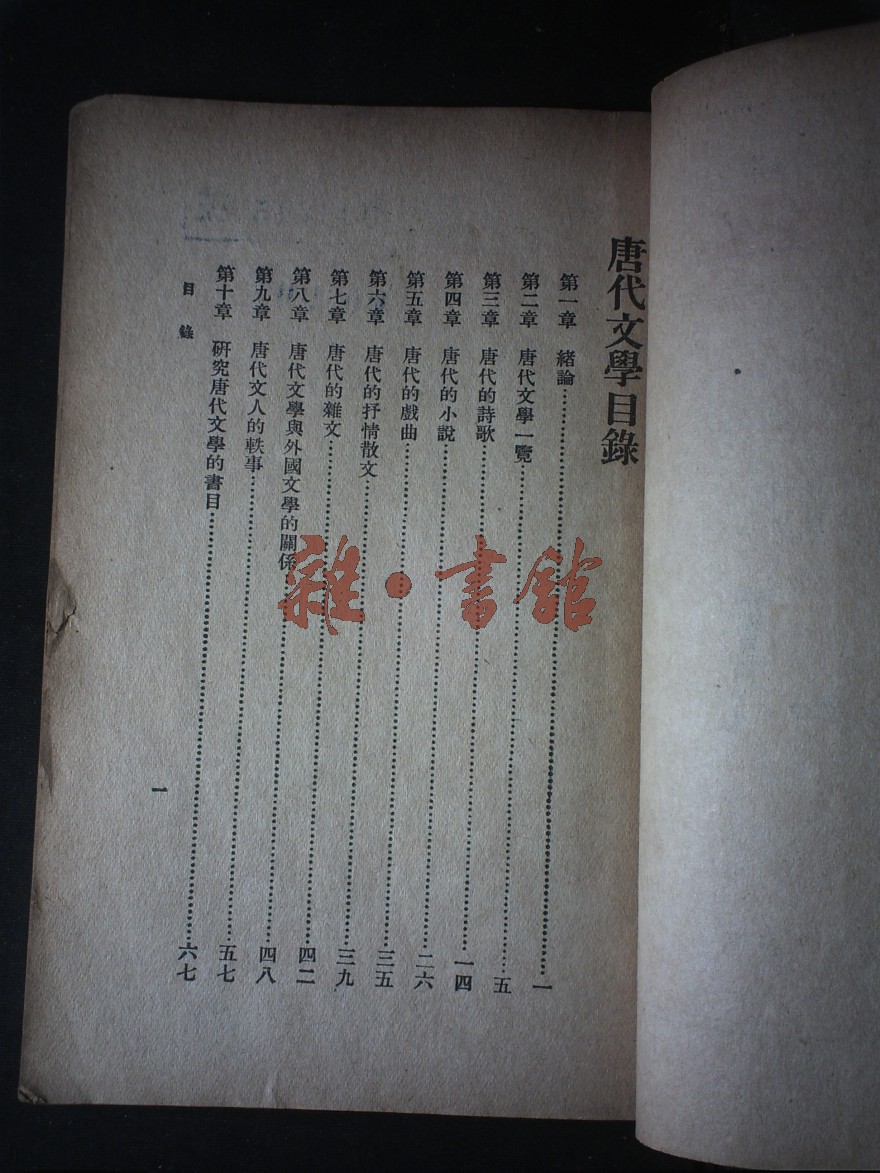 唐代文學目錄
第一章 緒論……一
第二章 唐代文學一覽……五
第三章 唐代的詩歌……一四
第四章 唐代的小說……二六
第五章 唐代的戲曲……三五
第六章 唐代的抒情散文……三九
第七章 唐代的雜文……四二
第八章 唐代文學與外國文學的關係……四八
第九章 唐代文人的軼事……五七
第十章 研究唐代文學的書目……六七
目錄
一
雜·書館